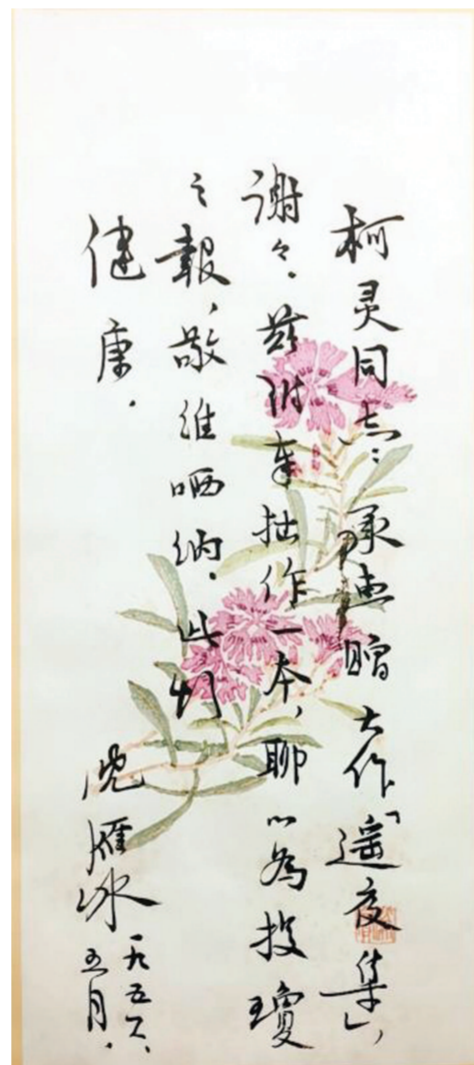 柯灵同志：承惠赠大作「遥夜集」，
谢々。兹附奉拙作一本，聊以为投瓊
之報，敬维哂纳。此颂
健康。
沈雁冰
一九五六、
五月。